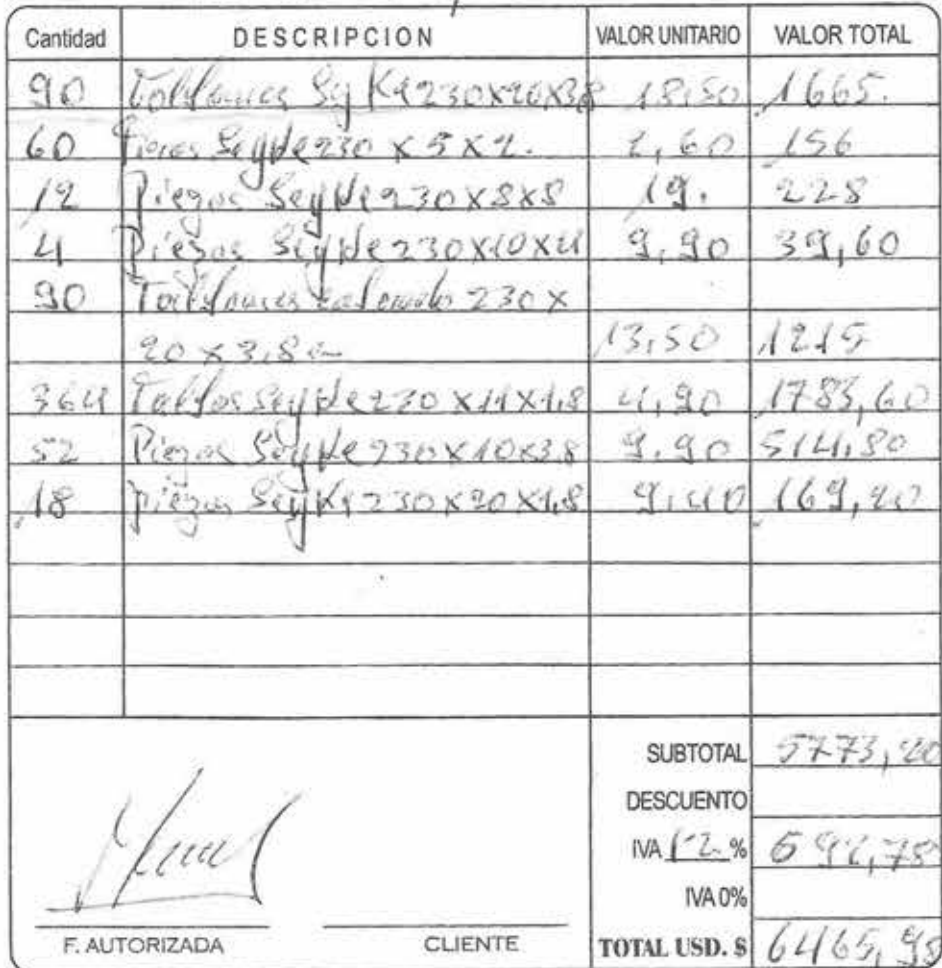 Cantidad DESCRIPCION VALOR UNITARIO VALOR TOTAL
90 Tablones Seyke 230x20x3,8 18,50 1665.
60 Piezas Seyke 230 x 5 x 2. 2,60 156
12 Piezas Seyke 230x8x8 19. 228
4 Piezas Seyke 230x10x4 9,90 39,60
90 Tablones 230 x
20 x 3,8 13,50 1215
364 Tablas Seyke 230 x11x1,8 4,90 1783,60
52 Piezas Seyke 230x10x3,8 9,90 514,80
18 piezas Seyke 230x20x1,8 9,40 169,20
SUBTOTAL 5773,20
DESCUENTO
IVA 12 % 692,78
IVA 0%
F. AUTORIZADA CLIENTE TOTAL USD. $ 6465,98